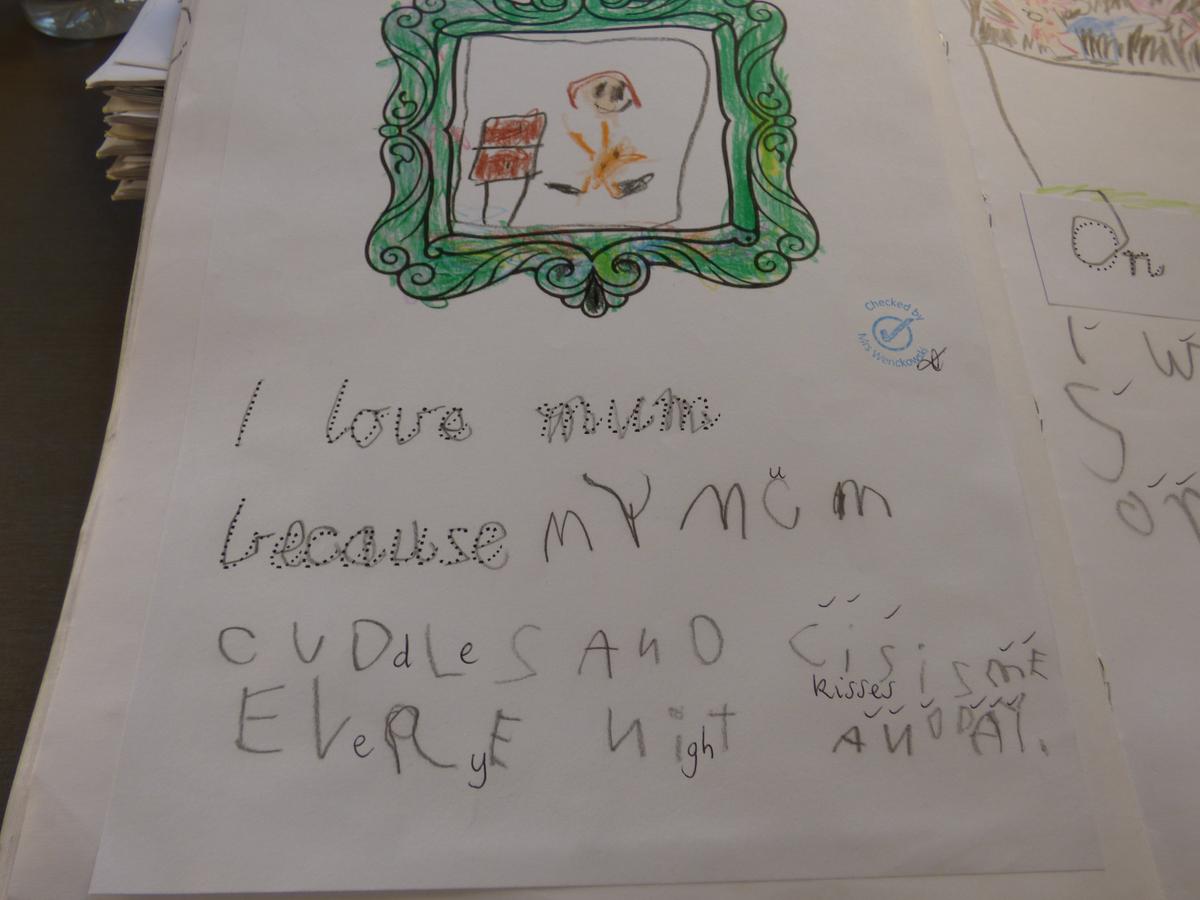 Checked by
Mrs Wenckowski
I love mum
because MY MUM
CUDDLES AND CiSiS ME
kisses
EVeRyE NightT AND DAi.
On
I W
S
ON